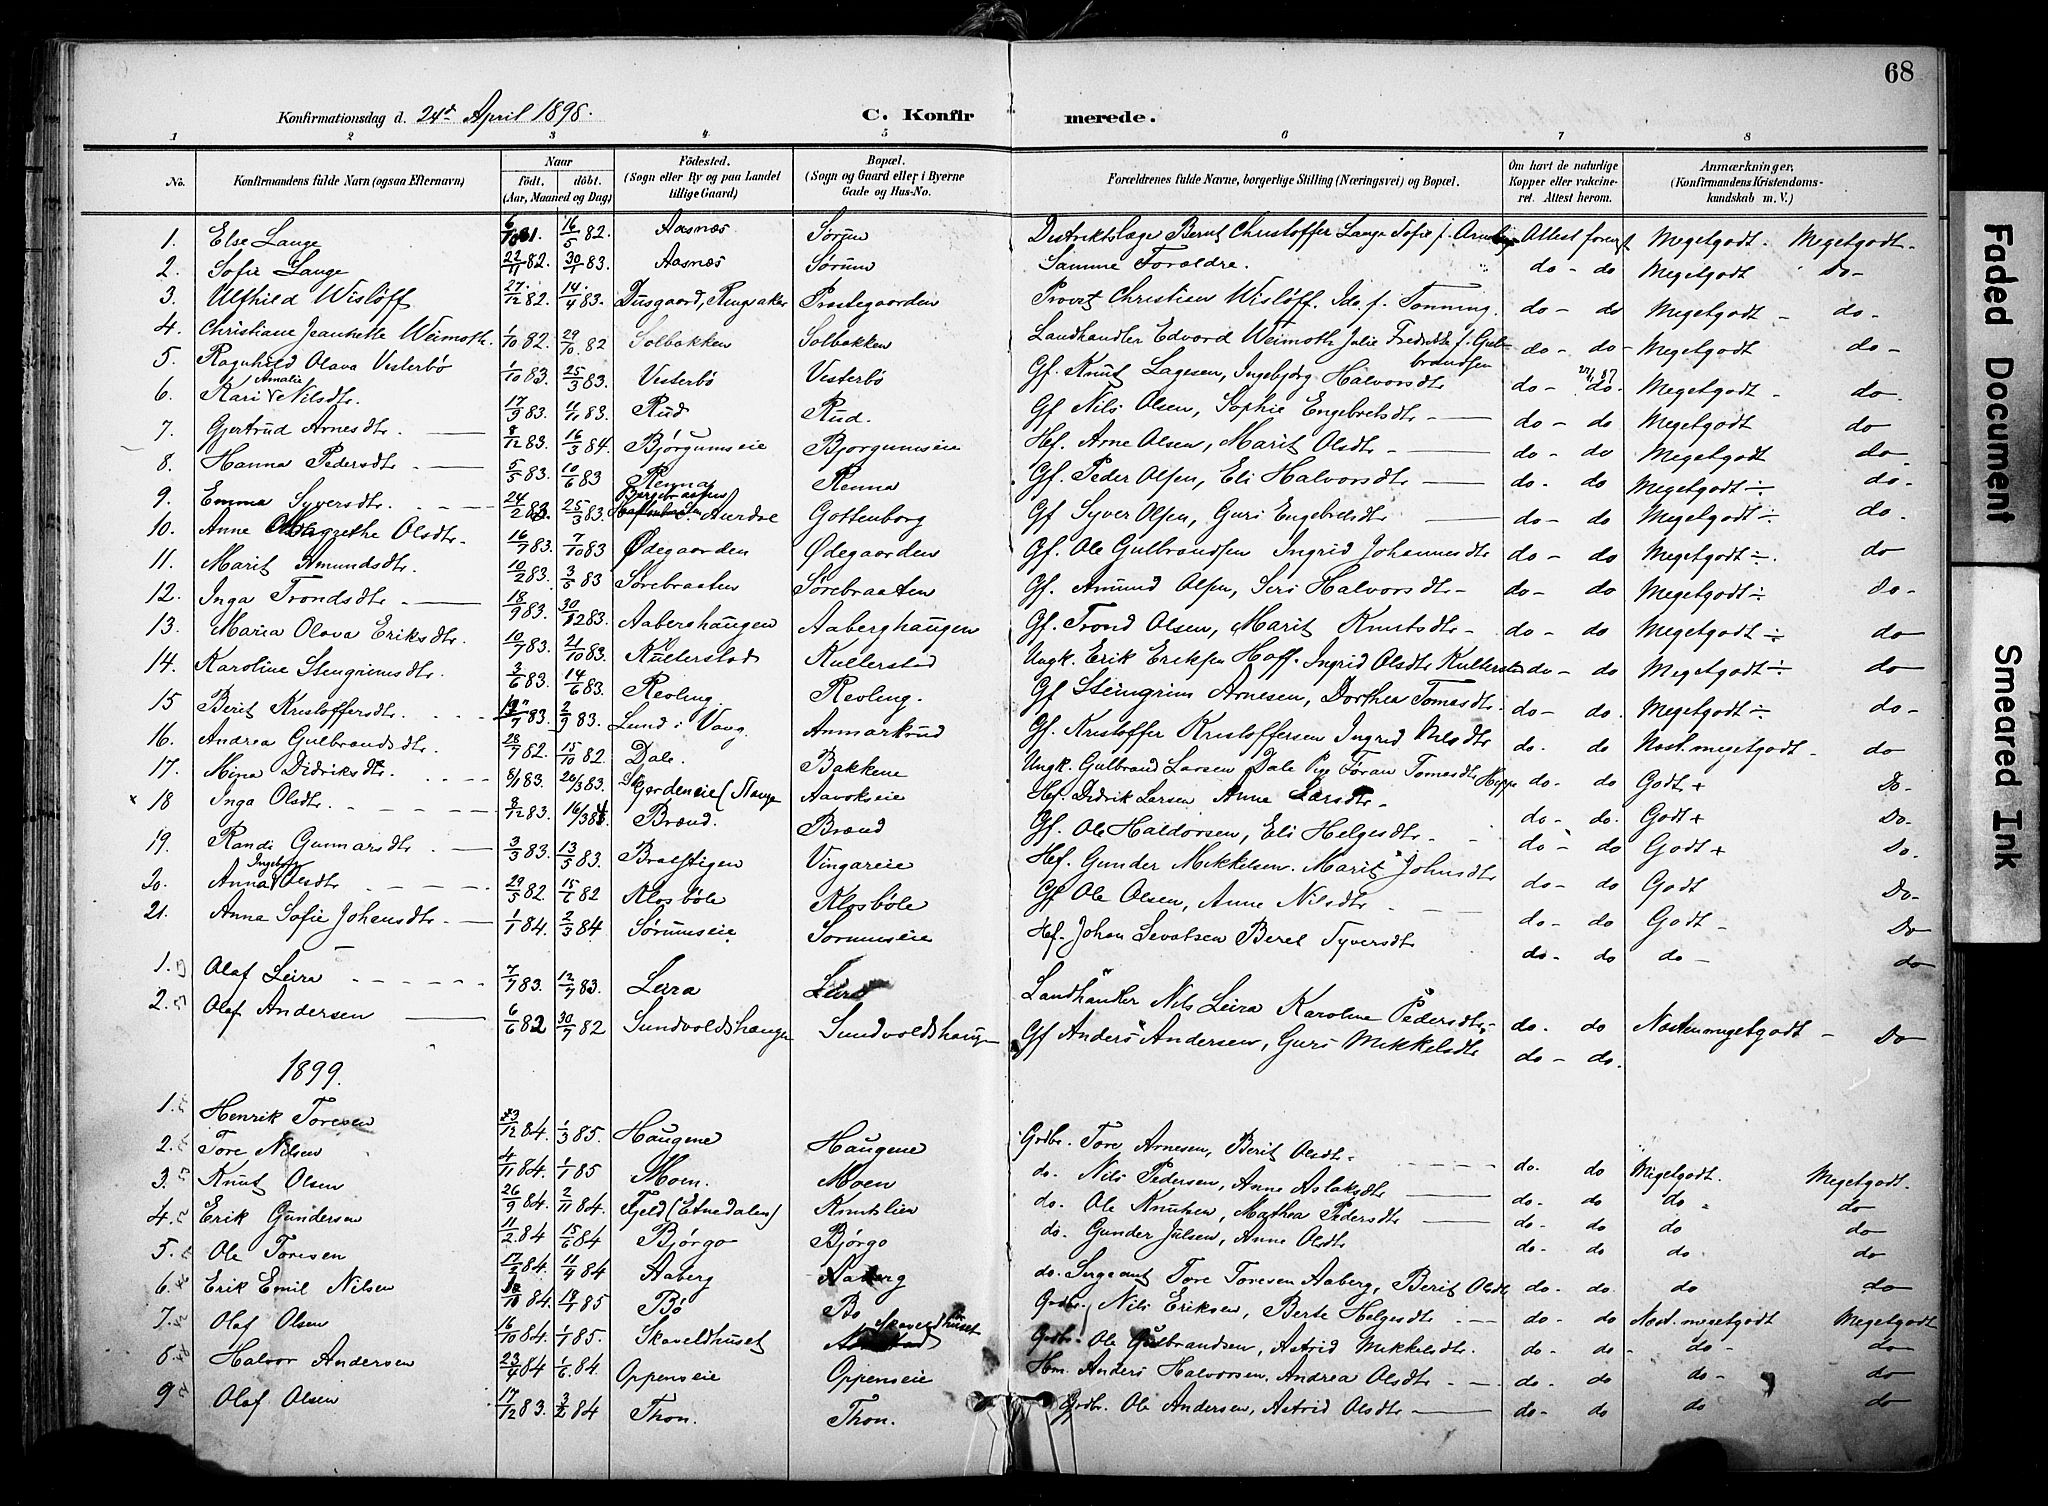 68
Konfirmationsdag d. 24d April 1898.
C. Konfirmerede.
1 2 3 4 5 6 7 8
No.
Konfirmandens fulde Navn (ogsaa Efternavn)
Naar
født. døbt.
(Aar, Maaned og Dag)
Fødested.
(Sogn eller By og paa Landet tillige Gaard)
Bopæl.
(Sogn og Gaard eller i Byerne Gade og Hus-No.
Forældrenes fulde Navne, borgerlige Stilling (Næringsvei) og Bopæl.
Om havt de naturlige Kopper eller vaccineret. Attest herom.
Anmærkninger.
(Konfirmandens Kristendomskundskab m. V.)
1. Else Lange 16/5 82. Aasnæs Sørum Distriktslæge Bernt Christoffer Lange Sofie f. Attest Megetgodt. Megetgodt.
2. Sofie Lange 22/11 82. 30/1 83. Aasnæs Sørum Samme Foraldre. do - do Megetgodt Do-
3. Ulfhild Wisløff 27/12 82. 14/4 83. Ringsaker Præstegaarden Provst Christien Wisløff. Ida f. Tonning. do - do Megetgodt - do-
4. Christiane Jeanette Weimoth. 1/10 82. 29/10 82 Solbakken Solbakken Landhandler Edvard Weimoth Julie Fredrikke f. Gulbrandsen do - do - Megetgodt do -
5. Ragnhild Olava Vesterbø 1/10 83. 25/3 83. Vesterbø Vesterbø Gf. Knut Lagesen, Ingebjørg Halvorsdtr do - do. Megetgodt - do
6. Kari Amalie Nilsdtr. 17/9 83. 11/11 83. Rud Rud. Gf Nils Olsen, Sophie Engebretsdtr - do - do Megetgodt do
7. Gjertrud Arnesdtr. 8/12 83. 16/3 84. Bjørgumseie Bjørgumseie Hf. Arne Olsen, Marit Olsdtr - do - do Megetgodt do.
8. Hanna Pedersdtr 5/5 83. 10/6 83 Renna Renna Gf. Peder Olsen, Eli Halvorsdtr - do - do Megetgodt ÷ do.
9. Emma Syversdtr. 24/2 83 25/3 83. Aurdal Gottenborg Gf Syver Olsen, Guri Engebretsdtr do - do Megetgodt ÷ do.
10. Anne Margrethe Olsdtr. 16/7 83. 7/10 83 Ødegaarden Ødegaarden Gf. Ole Gulbrandsen Ingrid Johannesdtr do - do Megetgodt ÷. do
11. Marit Amundsdtr. 10/2 83. 3/5 83 Sørebraaten Sørebraaten Gf. Amund Olsen, Siri Halvorsdtr - do - do Megetgodt ÷ do -
12. Inga Trondsdtr 18/9 83. 30/12 83. Aaberghaugen Aaberghaugen Gf. Trond Olsen, Marit Knutsdtr - do - do Megetgodt ÷ do
13. Maria Olava Eriksdtr. 10/7 83. 21/10 83. Kullerstad Kullerstad Ungk. Erik Eriksen Hoff. Ingrid Olsdtr do - do Megetgodt ÷ do
14. Karoline Steingrimsdtr. 3/6 83. 14/6 83. Revling. Revling. Gf Steingrim Arnesen, Dorthea Tomasdtr. do - do. Megetgodt ÷ do-
15 Berit Kristoffersdtr. 2/9 83. Lund i Vang. Anmarkrud Gf. Kristoffer Kristoffersen Ingrid Nilsdtr do. do Næst. megetgodt - do
16. Andrea Gulbrandsdtr. 28/7 82. 15/10 82 Dale. Bakkene Ungk. Gulbrand Larsen Dale Pige Jøran Tomasdtr do. do Godt + Do-
17. Mina Didriksdtr. 8/1 83. 26/3 83. Aavokseie Hf. Didrik Larsen Anne Larsdtr - do - do. Godt + Do.
18 Inga Olsdtr. 8/12 83. 16/3 84 Brænd. Brænd Gf. Ole Haldorsen, Eli Helgesdtr - do - do Godt + Do.
19. Randi Gunnarsdtr 3/3 83. 13/5 83. Vingareie Hf. Gunder Mikkelsen. Marit Johnsdtr do - do Godt Do-
20. Anna Ingeborg Olsdtr 29/5 82. 15/6 82 Klosbøle Klosbøle Gf Ole Olsen, Anne Nilsdtr do - do Godt - Do
21. Anne Sofie Johansdtr 1/1 84. 2/3 84. Sørumseie Sørumseie Hf. Johan Sevatsen Beret Syversdtr do - do do - do
1. Olaf Leira 7/7 83. 12/7 83. Leira Leira Landhandler Nils Leira Karoline Pedersdtr - do. do Næstenmegetgodt - Do
2. Olaf Andersen 6/6 82 30/7 82 Sundvoldshaugen Sundvoldshaugen Gf Anders Andersen, Guri Mikkelsdtr do - do.
1899.
1. Henrik Toresen 23/12 84. 1/3 85. Haugene Haugene Grdbr. Tore Arnesen, Berit Olsdtr. do. do Megetgodt. Megetgodt.
2. Tore Nilsen 4/11 84. 1/1 85 Moen. Moen do. Nils Pedersen, Anne Aslaksdtr do - do do do
3. Knut Olsen 26/9 84. 2/11 84. Fjeld (Etnedalen) Komtslien do. Ole Knutsen, Mathea Pedersdtr do - do do do
4. Erik Gundersen 11/2 84 15/6 84 Bjørgo Bjørgo do. Gunder Julsen, Anne Olsdtr do - do do do
5. Ole Toresen 17/2 84. 11/4 84 Aaberg Aaberg do. Sergeant Tore Toresen Aaberg, Berit Olsdtr do - do do do
6. Erik Emil Nilsen 84. 18/1 85 Bø Bø Grdbr. Nils Eriksen, Berte Helgesdtr. do - do Næst. megetgodt Megetgodt
7. Olaf Olsen 16/10 84. 1/1 85. Skaveldhuset Skaveldhuset Grdbr. Ole Gulbrandsen, Astrid Mikkelsdtr. do - do - do - do
8. Halvor Andersen 23/4 84 1/6 84. Oppenseie Oppenseie Hm. Anders Halvorsen, Andrea Olsdtr - do - do do - do
9 Olaf Olsen 17/12 83. 3/2 84 Thon. Thon. Grdbr. Ole Andersen, Astrid Olsdtr do - do do do
Faded Document
Smeared Ink